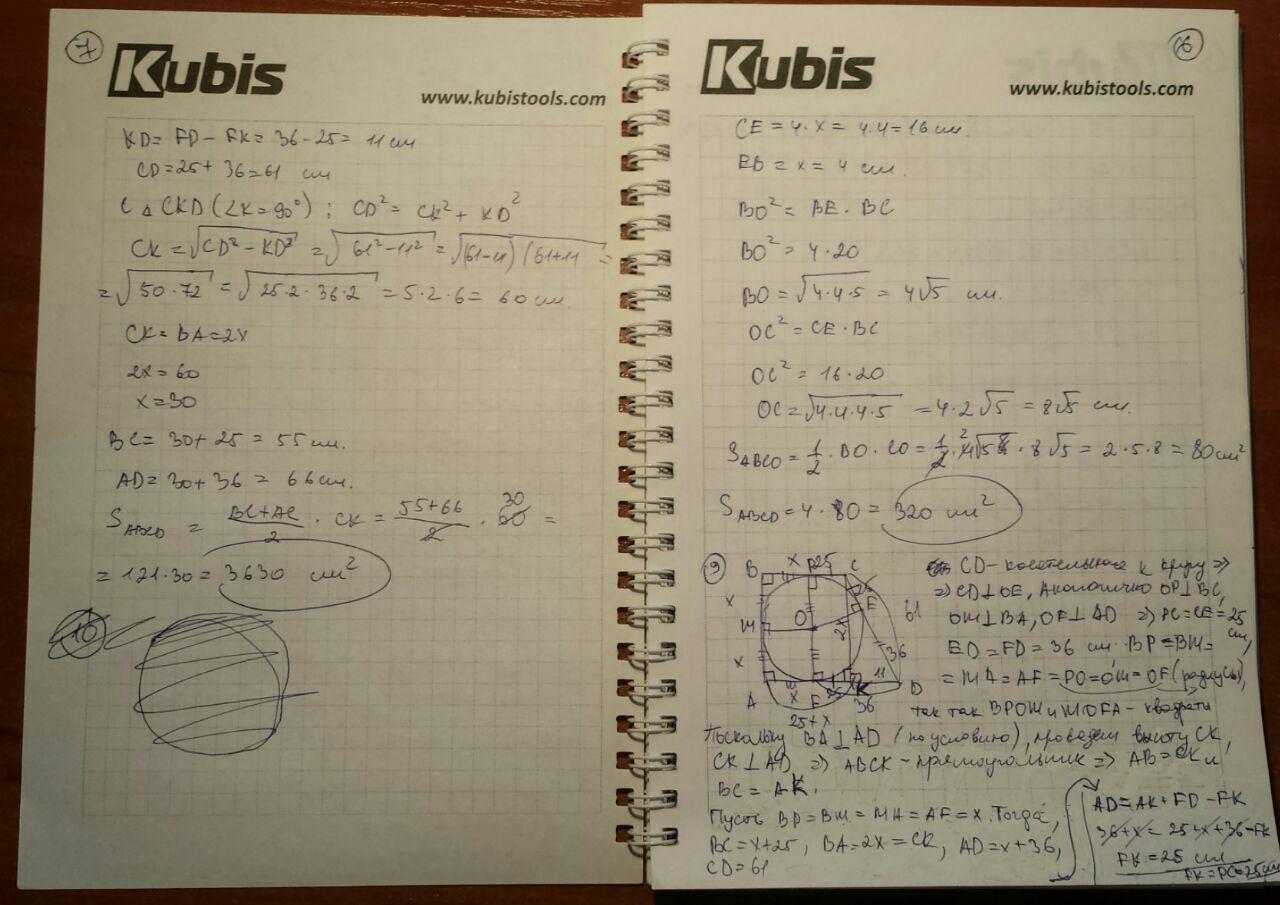 7
Kubis
www.kubistools.com
KD = FD - FK = 36 - 25 = 11 см
CD = 25 + 36 = 61 см
С △ CKD (∠K = 90°) ; CD² = CK² + KD²
CK = √(CD² - KD²) = √(61² - 11²) = √(61-11)(61+11 =
= √(50·72) = √(25·2·36·2) = 5·2·6 = 60 см.
CK = BA = 2x
2x = 60
x = 30
BC = 30 + 25 = 55 см.
AD = 30 + 36 = 66 см.
S_ABCD = (BC + AC)/2 · CK = (55 + 66)/2 · 60 30 =
= 121·30 = 3630 см²
10
6
Kubis
www.kubistools.com
CE = 4·x = 4·4 = 16 см.
EB = x = 4 см.
BO² = BE · BC
BO² = 4·20
BO = √(4·4·5) = 4√5 см.
OC² = CE · BC
OC² = 16·20
OC = √(4·4·4·5) = 4·2√5 = 8√5 см.
S_ABCO = 1/2 · BO · CO = 1/2 · 4√5 · 8√5 = 2·5·8 = 80 см²
S_ABCD = 4·80 = 320 см²
9
B x P 25 C
x 25
O E 61
M 2x
x 36
11
A x F 25 K 36 D
25+x
CD - касательная к кругу ⇒
⇒ CD ⊥ OE, Аналогично OP ⊥ BC,
OM ⊥ BA, OF ⊥ AD ⇒ PC = CE = 25 см,
ED = FD = 36 см. BP = BM =
= MA = AF = PO = OM = OF (радиусы),
так так BPOM и MOFA - квадраты
Поскольку BA ⊥ AD (по условию), проведем высоту CK,
CK ⊥ AD ⇒ ABCK - прямоугольник ⇒ AB = CK и
BC = AK.
Пусть BP = BM = MA = AF = x. Тогда,
BC = x + 25, BA = 2x = CK, AD = x + 36,
CD = 61
AD = AK + FD - FK
36 + x = 25 + x + 36 - FK
FK = 25 см
FK = PC = 25 см